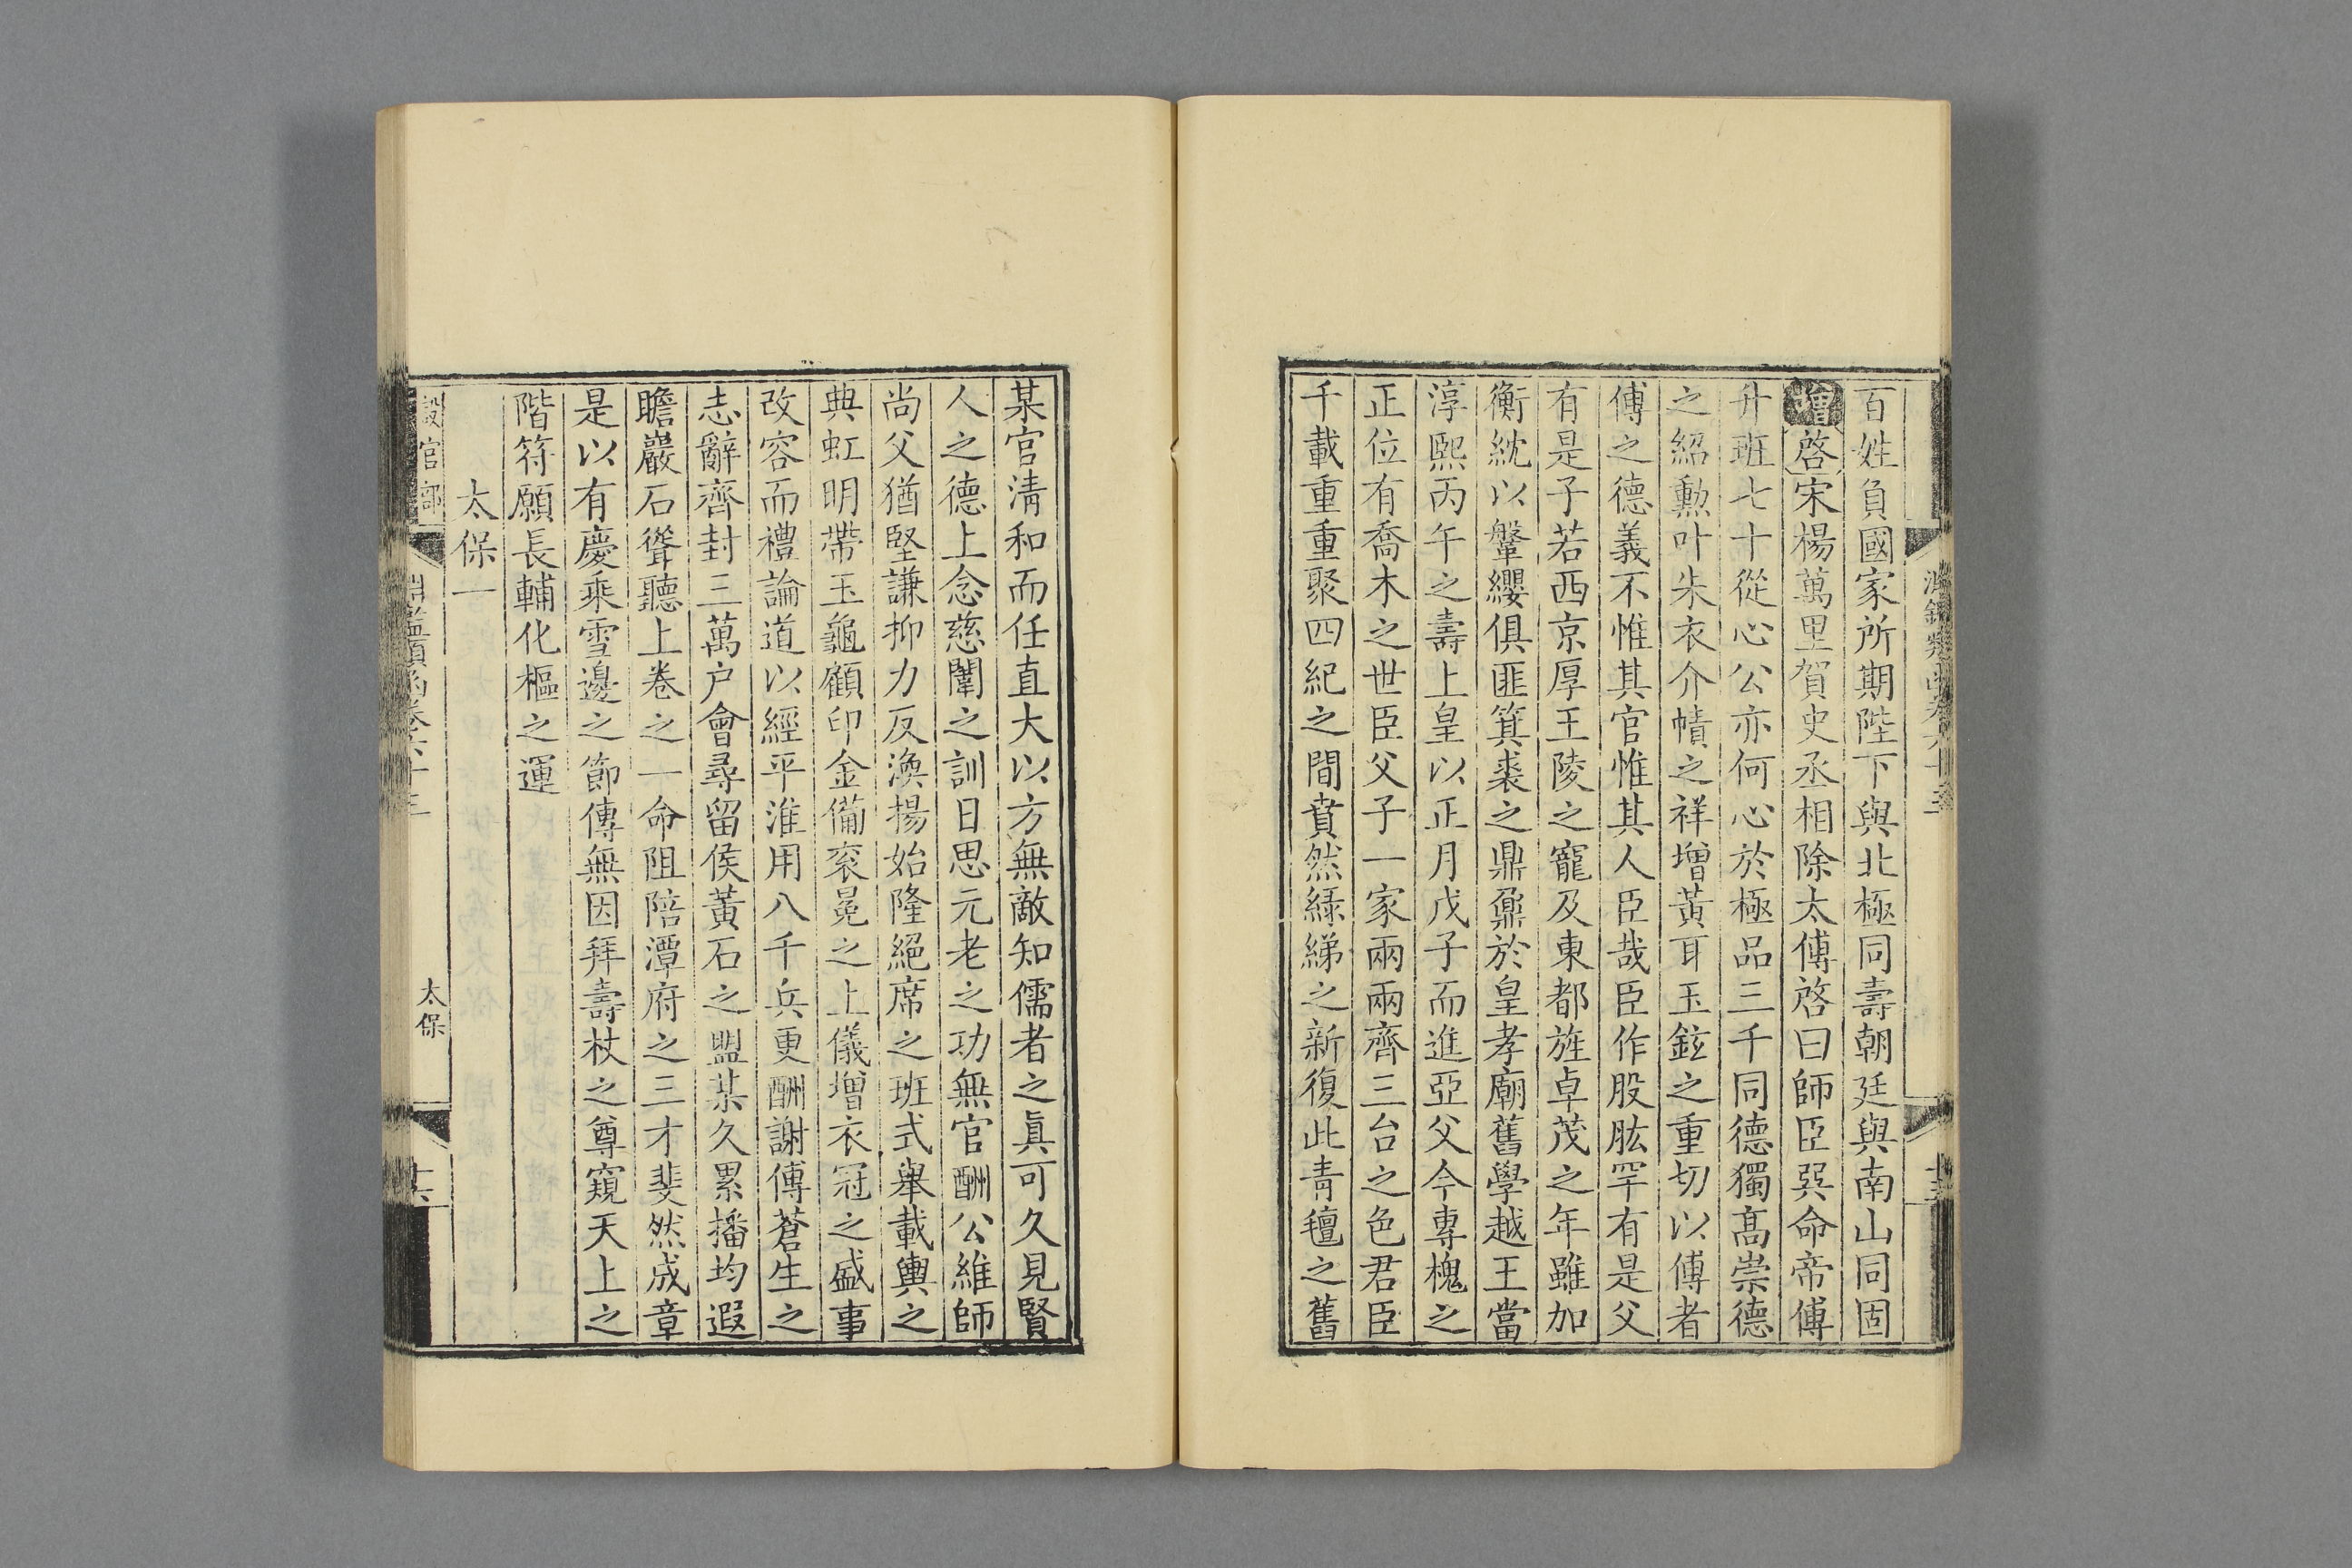 百姓負國家所期陛下與北極同壽朝廷與南山同固
增啓宋楊萬里賀史丞相除太傅啓曰師臣巽命帝傅
升班七十從心公亦何心於極品三千同德獨髙崇德
之紹勲叶朱衣介幘之祥增黃耳玉鉉之重切以傅者
傅之德義不惟其官惟其人臣哉臣作股肱罕有是父
有是子若西京厚王陵之寵及東都旌卓茂之年雖加
衡紞以鞶纓俱匪箕裘之鼎鼐於皇孝廟舊學越王當
淳熙丙午之壽上皇以正月戊子而進亞父今專槐之
正位有喬木之世臣父子一家兩兩齊三台之色君臣
千載重重聚四紀之間賁然綠綈之新復此青氊之舊
某官清和而任直大以方無敵知儒者之眞可久見賢
人之德上念慈闈之訓日思元老之功無官酬公維師
尚父猶堅謙抑力反渙揚始隆絕席之班式舉載輿之
典虹明帶玉龜顧印金備衮冕之上儀增衣冠之盛事
改容而禮論道以經平淮用八千兵更酬謝傅蒼生之
志辭齊封三萬户會尋留侯黃石之盟某久累播均遐
瞻巖石聳聽上卷之一命阻陪潭府之三才斐然成章
是以有慶乘雪邊之節傳無因拜壽杖之尊窺天上之
階符願長輔化樞之運
太保一
設官部
太保